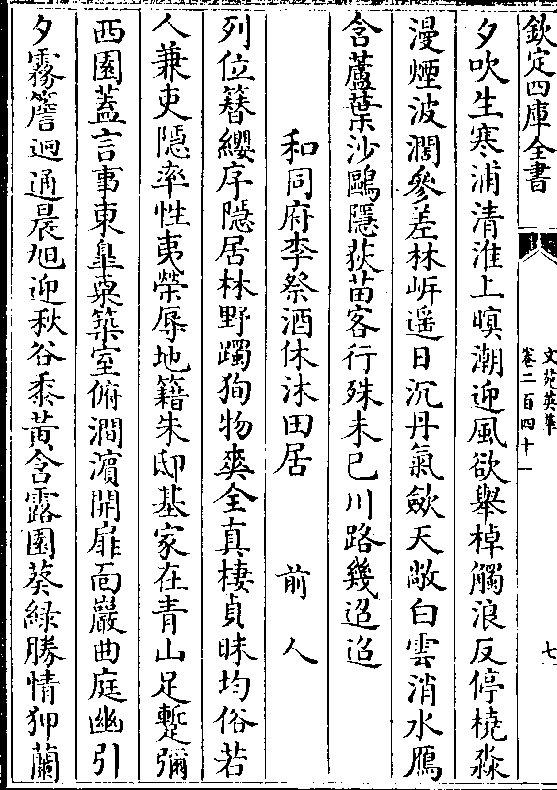 欽定四庫全書
文苑英華
卷二百四十一
七
夕吹生寒浦清淮上暝潮迎風欲舉棹觸浪反停橈淼
漫煙波濶參差林岍遥日沉丹氣斂天敞白雲消水鴈
含蘆葉沙鷗隱荻苗客行殊未已川路幾迢迢
和同府李祭酒休沐田居 前人
列位簪纓序隱居林野躅狥物爽全真棲貞昧均俗若
人兼吏隱率性夷榮辱地籍朱邸基家在青山足蹔彌
西園蓋言事東臯粟築室俯澗濵開扉面巖曲庭幽引
夕霧簷迥通晨旭迎秋谷黍黄含露園葵綠勝情狎蘭